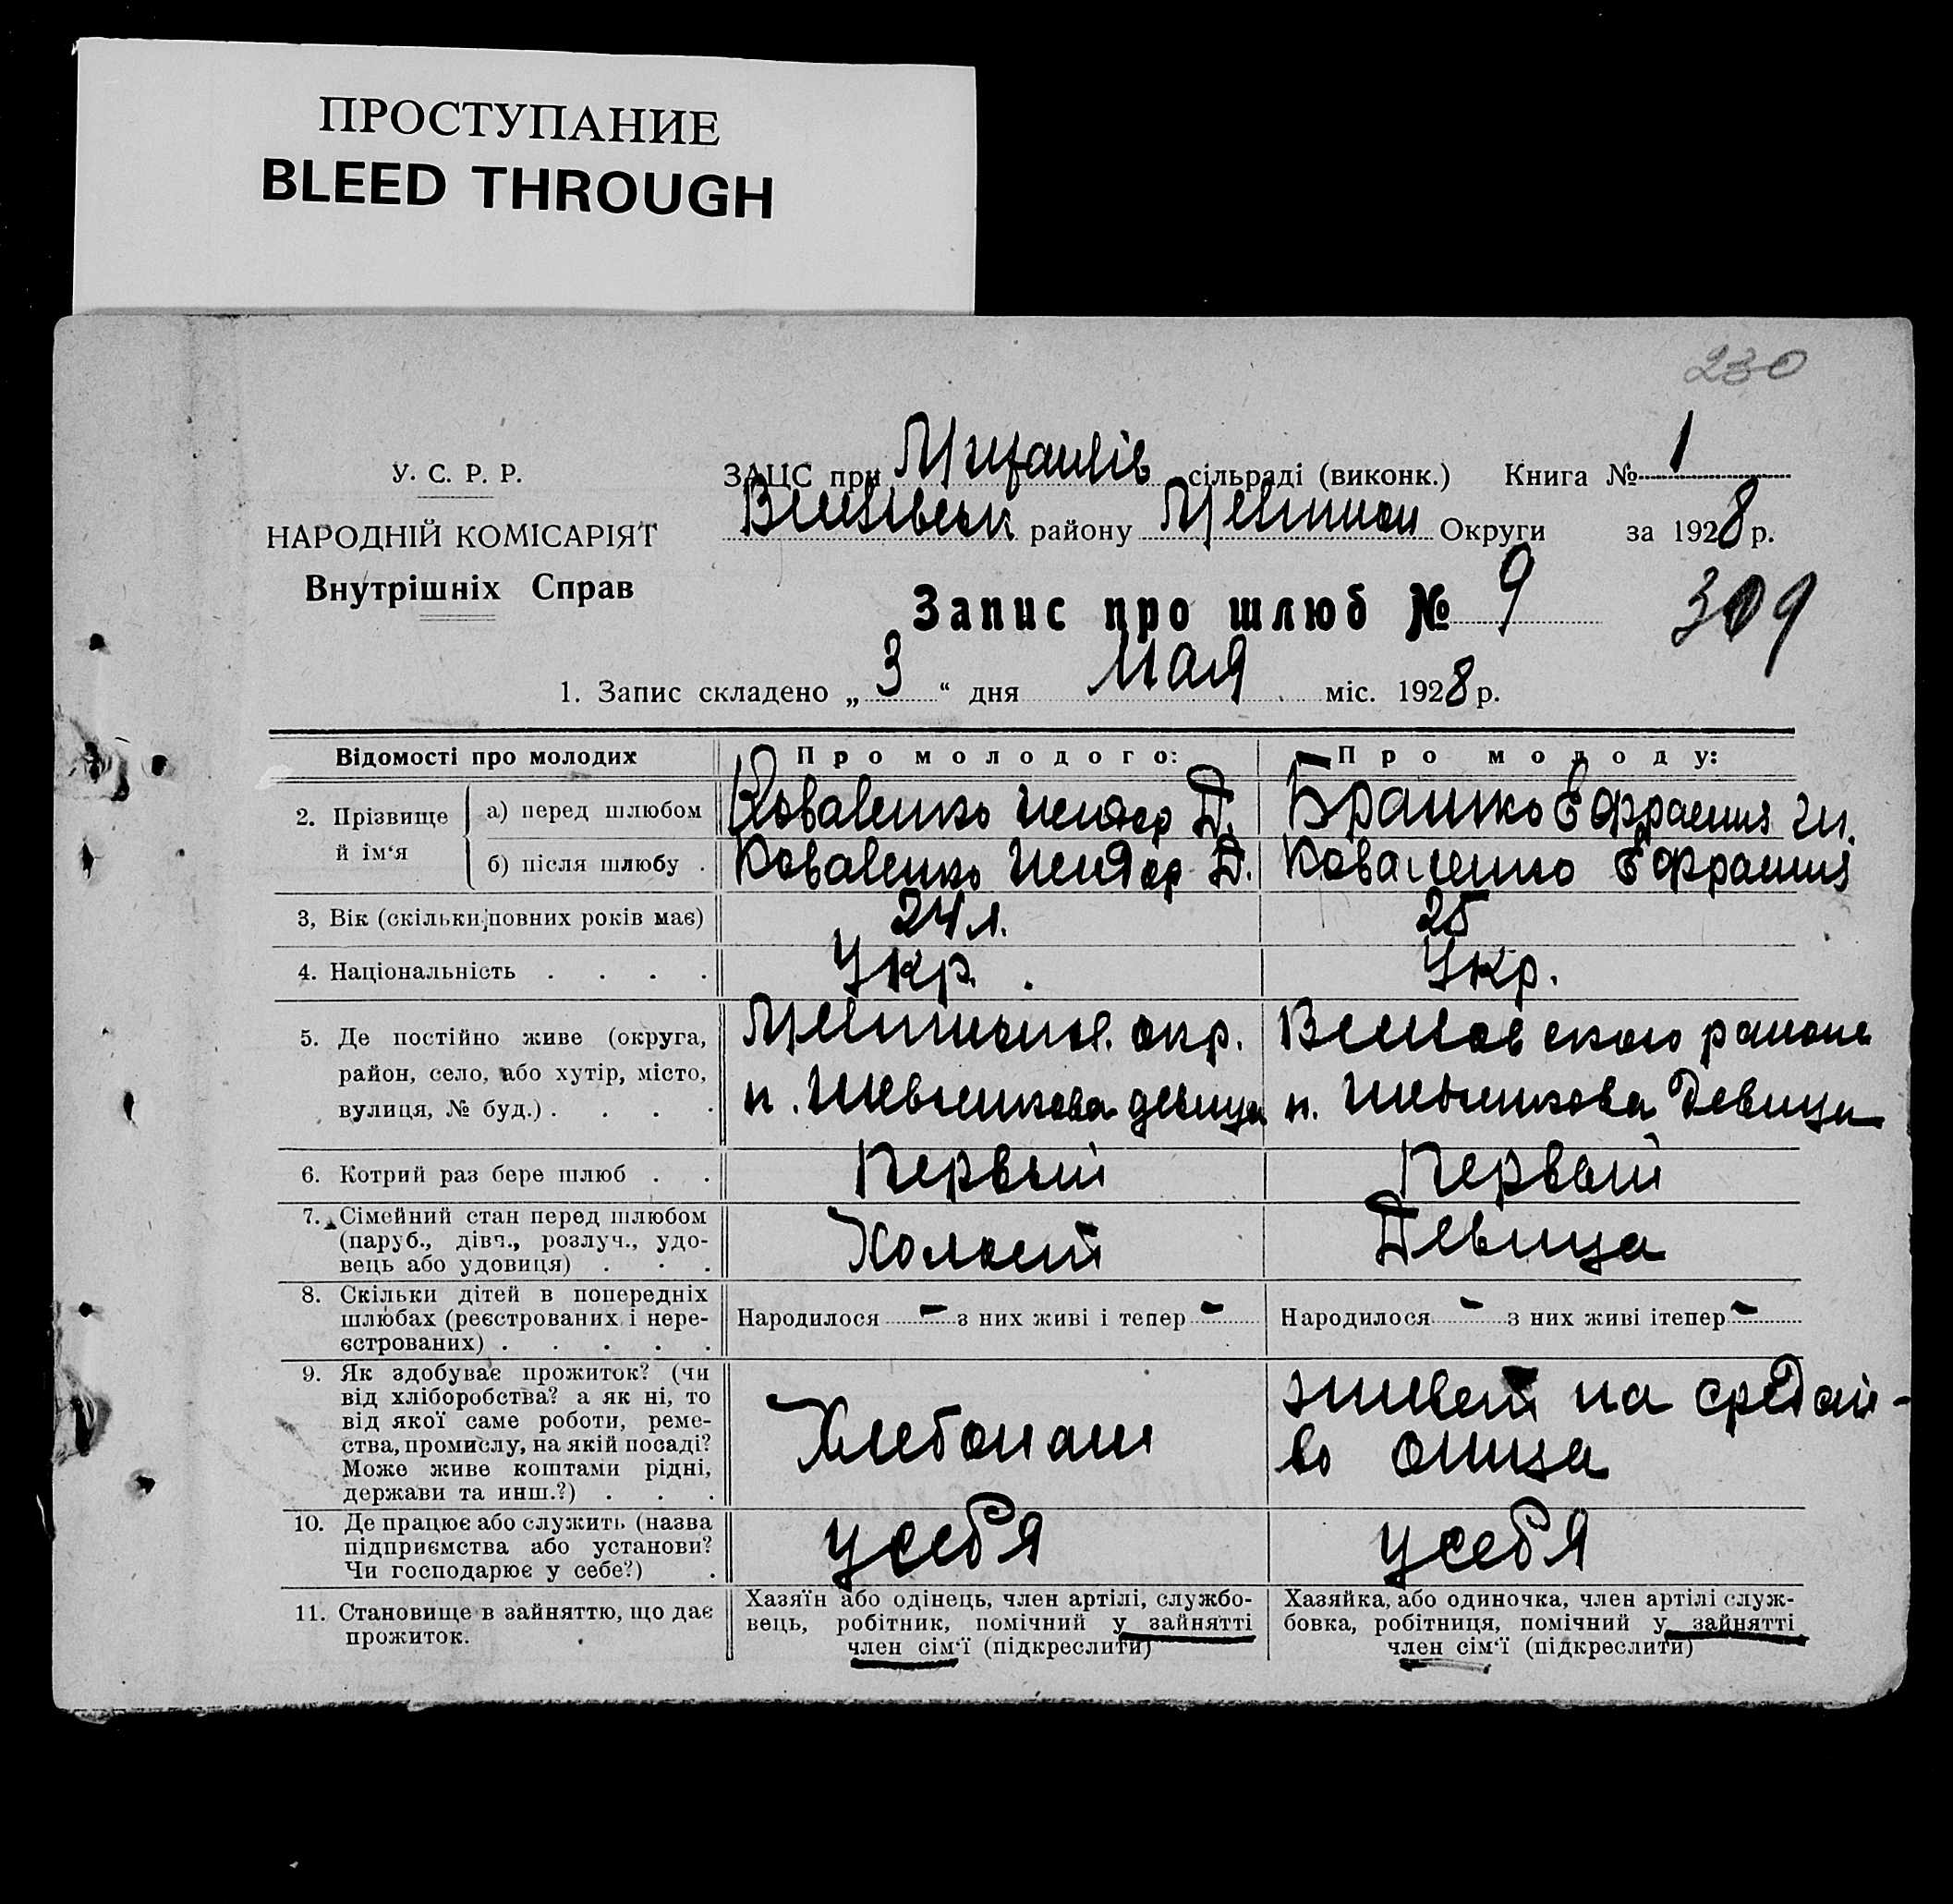 ПРОСТУПАНИЕ
BLEED THROUGH
230
У. С. Р. Р.
НАРОДНІЙ КОМІСАРІЯТ
Внутрішніх Справ
ЗАЦС при сільраді (виконк.) Книга № 1
району Округи за 1928 р.
Запис про шлюб № 9
309
1. Запис складено „ 3 “ дня мая міс. 1928 р.
Відомості про молодих
Про молодого:
Про молоду:
2. Прізвище й ім‘я
а) перед шлюбом
Коваленко Д.
Ефрасиня
б) після шлюбу .
Коваленко Д.
Коваленко Ефрасиня
3, Вік (скільки повних років має)
24 л.
25
4. Національність . . . .
Укр.
Укр.
5. Де постійно живе (округа,
район, село, або хутір, місто,
вулиця, № буд.) . . . .
окр.
девица
ского района
Девица
6. Котрий раз бере шлюб . .
Первый
Первый
7. Сімейний стан перед шлюбом
(паруб., дівч., розлуч., удо-
вець або удовиця) . . .
Холост
Девица
8. Скільки дітей в попередніх
шлюбах (реєстрованих і нере-
єстрованих) . . . . .
Народилося - з них живі і тепер -
Народилося - з них живі ітепер -
9. Як здобуває прожиток? (чи
від хліборобства? а як ні, то
від якої саме роботи, реме-
ства, промислу, на якій посаді?
Може живе коштами рідні,
держави та инш.?) . . .
Хлебопаш
живет на средст-
во отца
10. Де працює або служить (назва
підприємства або установи?
Чи господарює у себе?) .
у себя
у себя
11. Становище в зайняттю, що дає
прожиток.
Хазяїн або одінець, член артілі, службо-
вець, робітник, помічний у зайнятті
член сім‘ї (підкреслити)
Хазяйка, або одиночка, член артілі служ-
бовка, робітниця, помічний у зайнятті
член сім‘ї (підкреслити)